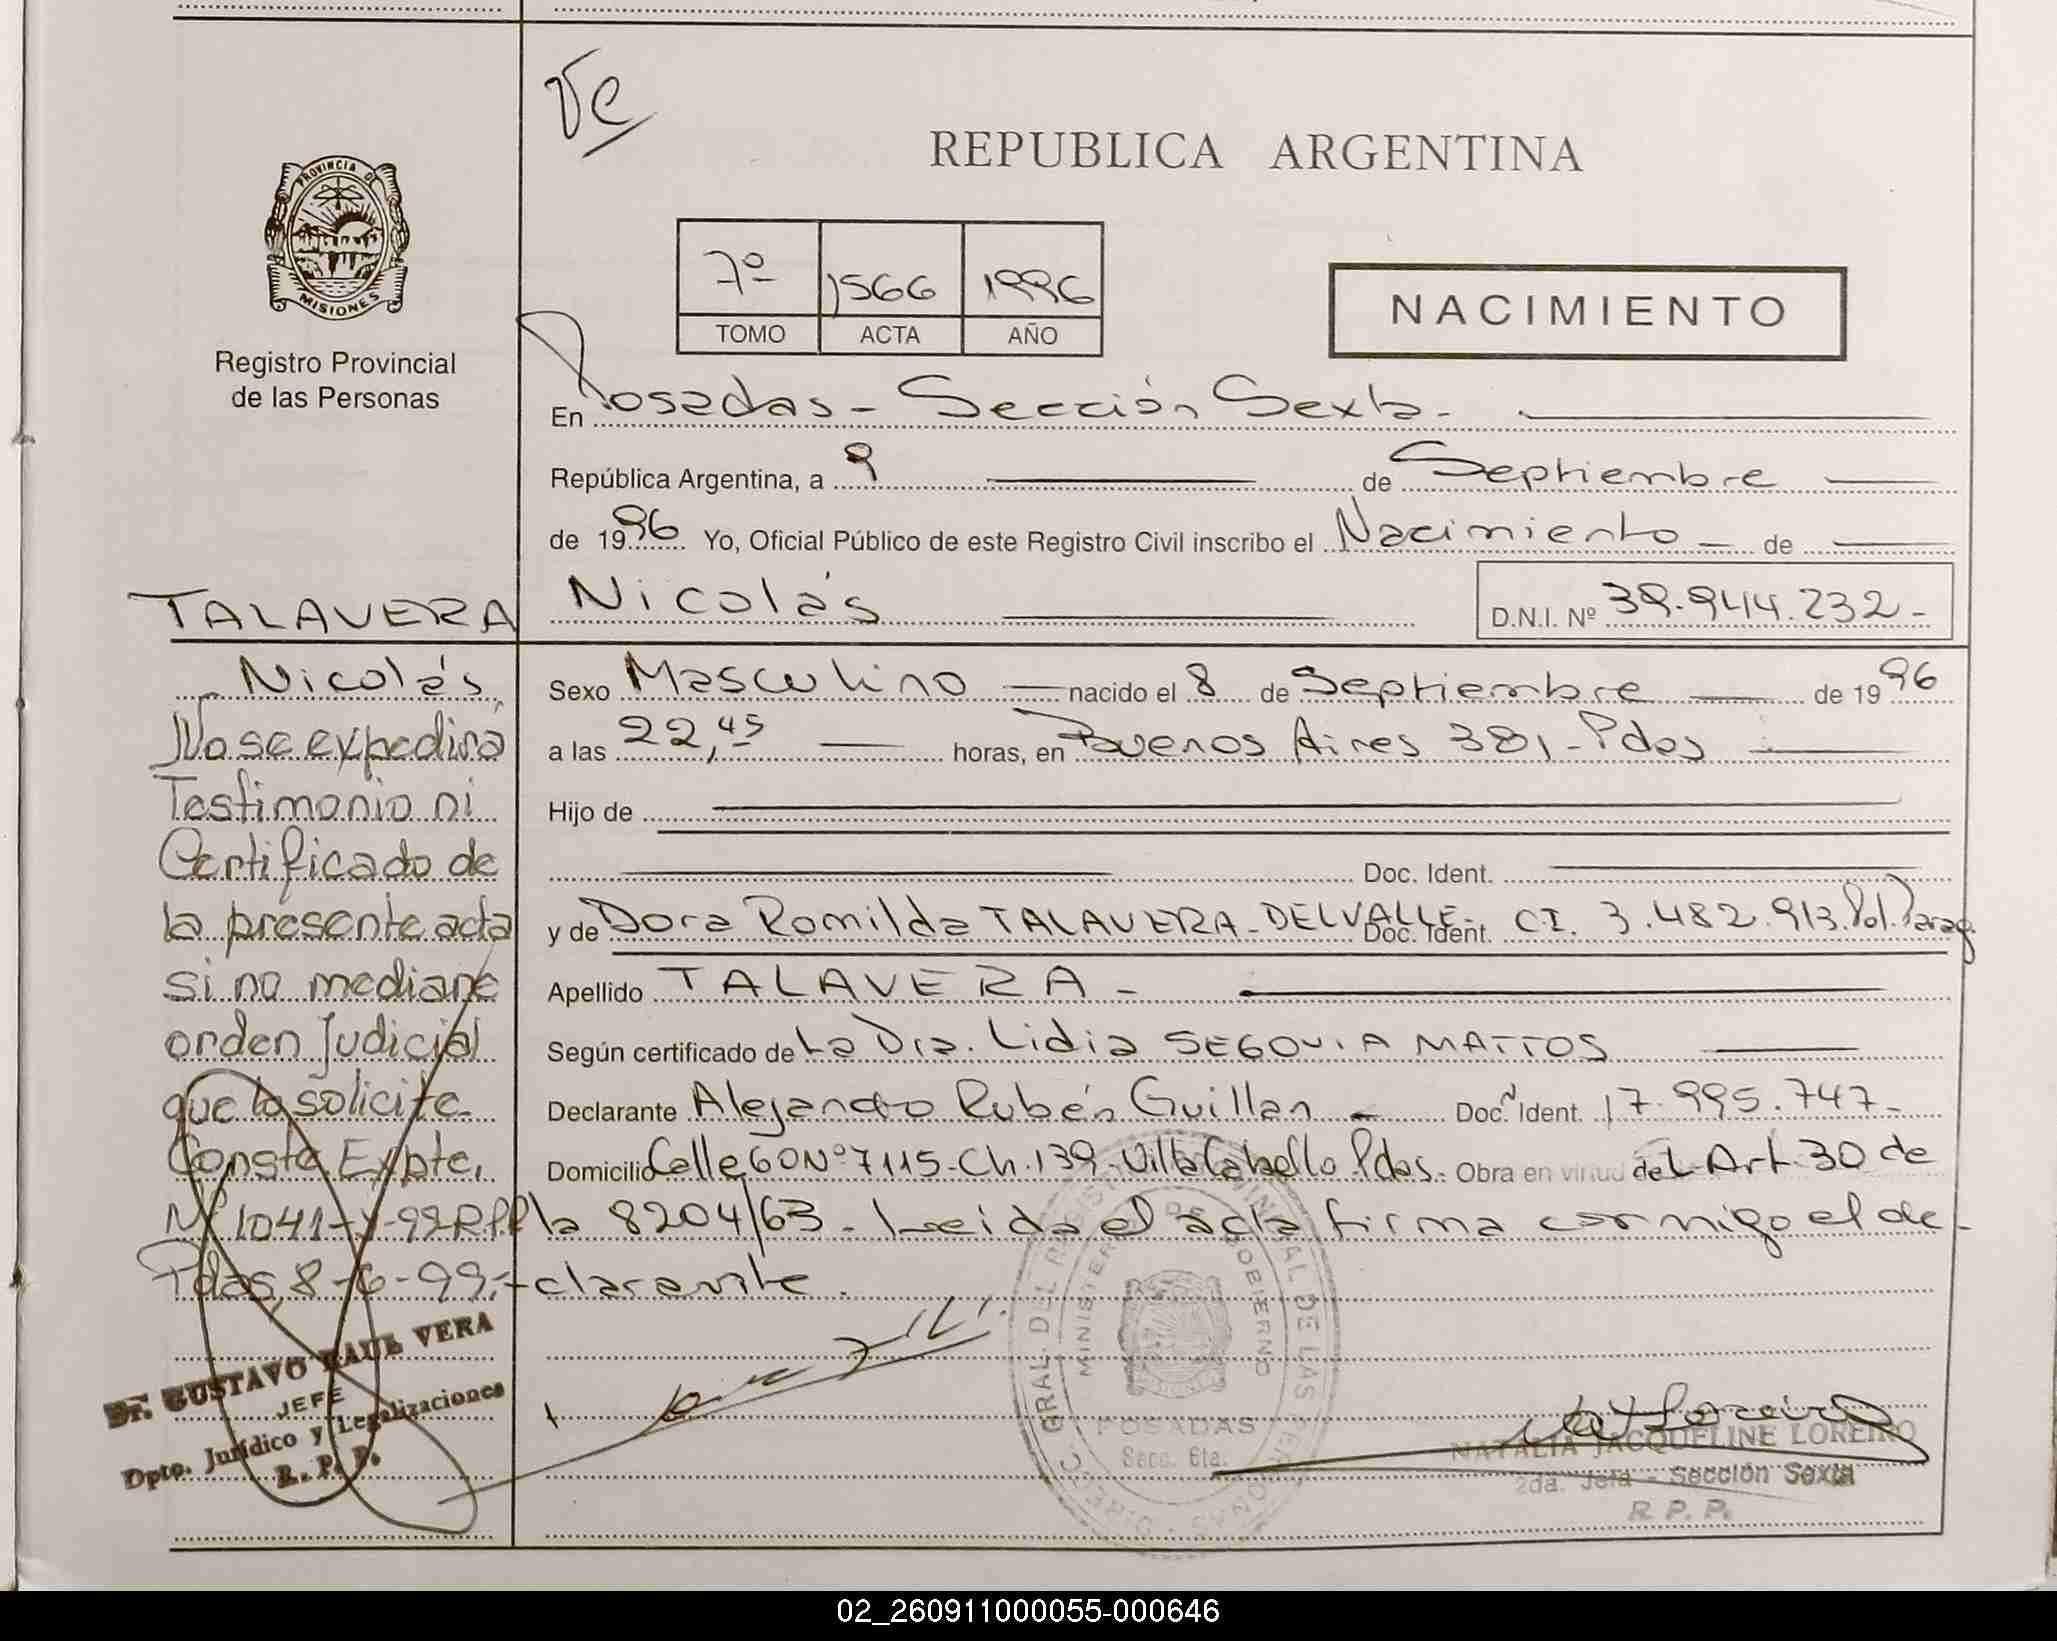 Ve
REPUBLICA ARGENTINA
PROVINCIA DE
MISIONES
Registro Provincial
de las Personas
7º 1566 1996
TOMO ACTA AÑO
NACIMIENTO
En Posadas - Sección Sexta -
República Argentina, a 9 de Septiembre
de 1996 Yo, Oficial Público de este Registro Civil inscribo el Nacimiento - de
Nicolás D.N.I. Nº 39.944.232 -
TALAVERA
Nicolás
No se expedirá
Testimonio ni
Certificado de
la presente acta
si no mediare
orden Judicial
que lo solicite.
Consta Expte.
Nº 1041-Y-99 R.P.P
Pdas, 8-6-99.-
Dr. GUSTAVO RAUL VERA
JEFE
Dpto. Jurídico y Legalizaciones
R. P. P.
Sexo Masculino nacido el 8 de Septiembre de 1996
a las 22,45 horas, en Buenos Aires 381 - Pdas
Hijo de
Doc. Ident.
y de Dora Romilda TALAVERA - DELVALLE - Doc. Ident. CI. 3.482.913. Pol. Parag.
Apellido TALAVERA -
Según certificado de La Dra. Lidia SEGOVIA MATTOS
Declarante Alejandro Rubén Guillan - Doc. Ident. 17.995.747 -
Domicilio Calle 60 Nº 7115 - Ch. 139 - Villa Cabello Pdas. Obra en virtud del Art. 30 de
la 8204/63 - Leida el acta firma conmigo el de-
clarante.
DIREC. GRAL. DEL REGISTRO PROVINCIAL DE LAS PERSONAS
MINISTERIO DE GOBIERNO
POSADAS
Secc. 6ta.
NATALIA JACQUELINE LOREIRO
2da. Jefa - Sección Sexta
R. P. P.
02_260911000055-000646